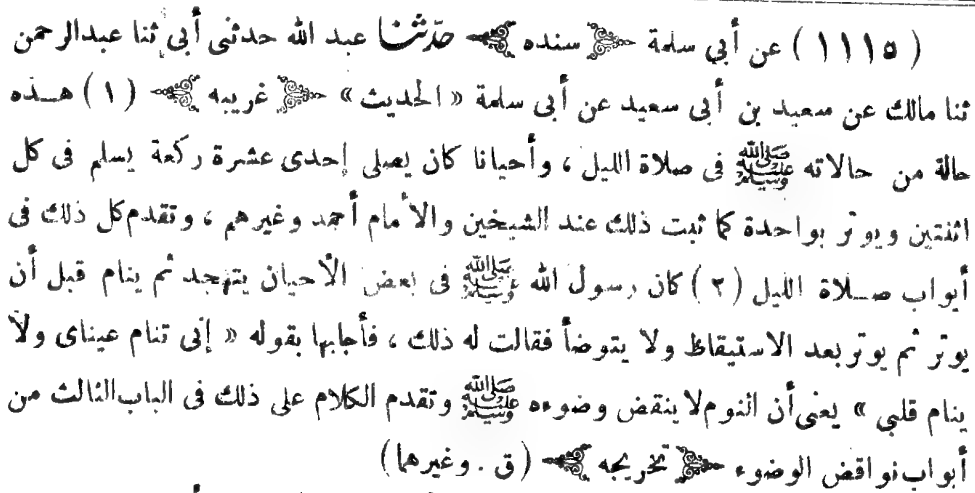 (١١١٥) عن أبي سلمة ﴿ سنده ﴾ حدّثنا عبد الله حدثنى أبى ثنا عبدالرحمن
ثنا مالك عن سعيد بن أبى سعيد عن أبى سلمة « الحديث » ﴿ غريبه ﴾ (١) هـذه
حالة من حالاته ﷺ فى صلاة الليل ، وأحيانا كان يصلى إحدى عشرة ركعة يسلم فى كل
اثنتين ويوتر بواحدة كما ثبت ذلك عند الشيخين والأمام أحمد وغيرهم ، وتقدم كل ذلك فى
أبواب صـلاة الليل (٢) كان رسول الله ﷺ فى بعض الأحيان يتهجد ثم ينام قبل أن
يوتر ثم يوتر بعد الاستيقاظ ولا يتوضأ فقالت له ذلك ، فأجابها بقوله « إنى تنام عيناى ولا
ينام قلبي » يعنى أن النوم لا ينقض وضوءه ﷺ وتقدم الكلام على ذلك فى الباب الثالث من
أبواب نواقض الوضوء ﴿ تخريجه ﴾ (ق . وغيرهما)